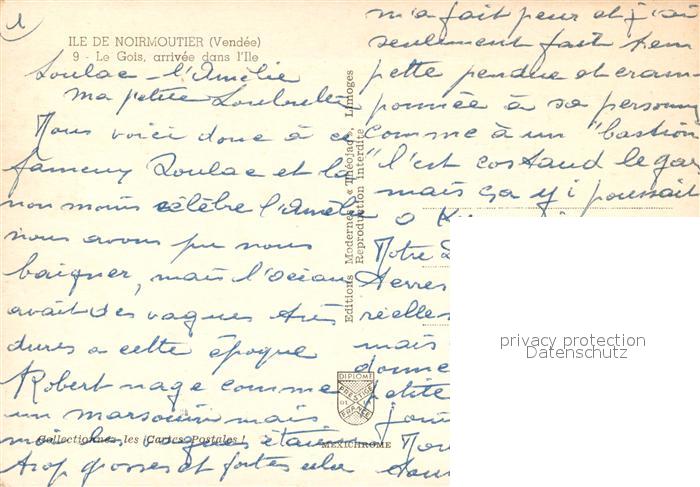 1
ILE DE NOIRMOUTIER (Vendée)
9 - Le Gois, arrivée dans l'Ile
Soulac - l'Amélie
ma petite
Nous voici donc à ce
fameux Soulac et la
non moins célèbre l'Amélie
nous avons pu nous
baigner, mais l'océan
avait des vagues très
dures a cette époque
Robert nage comme
un marsouin mais
moi les vagues étaient
trop grosses et fortes cela
Collectionnez les Cartes Postales !
Editions Modernes « Théojac », Limoges
Reproduction interdite
DIPLOME
PRESTIGE
FRANCE
MEXICHROME
m'a fait peur et j'ai
seulement fait trem
pette pendue et cram
ponnée à sa personne
comme à un "bastion
"l'est costaud le gar
mais ça y i poussait
Notre
terres
réelles
mais
donne
petite
Nou
dans
privacy protection
Datenschutz